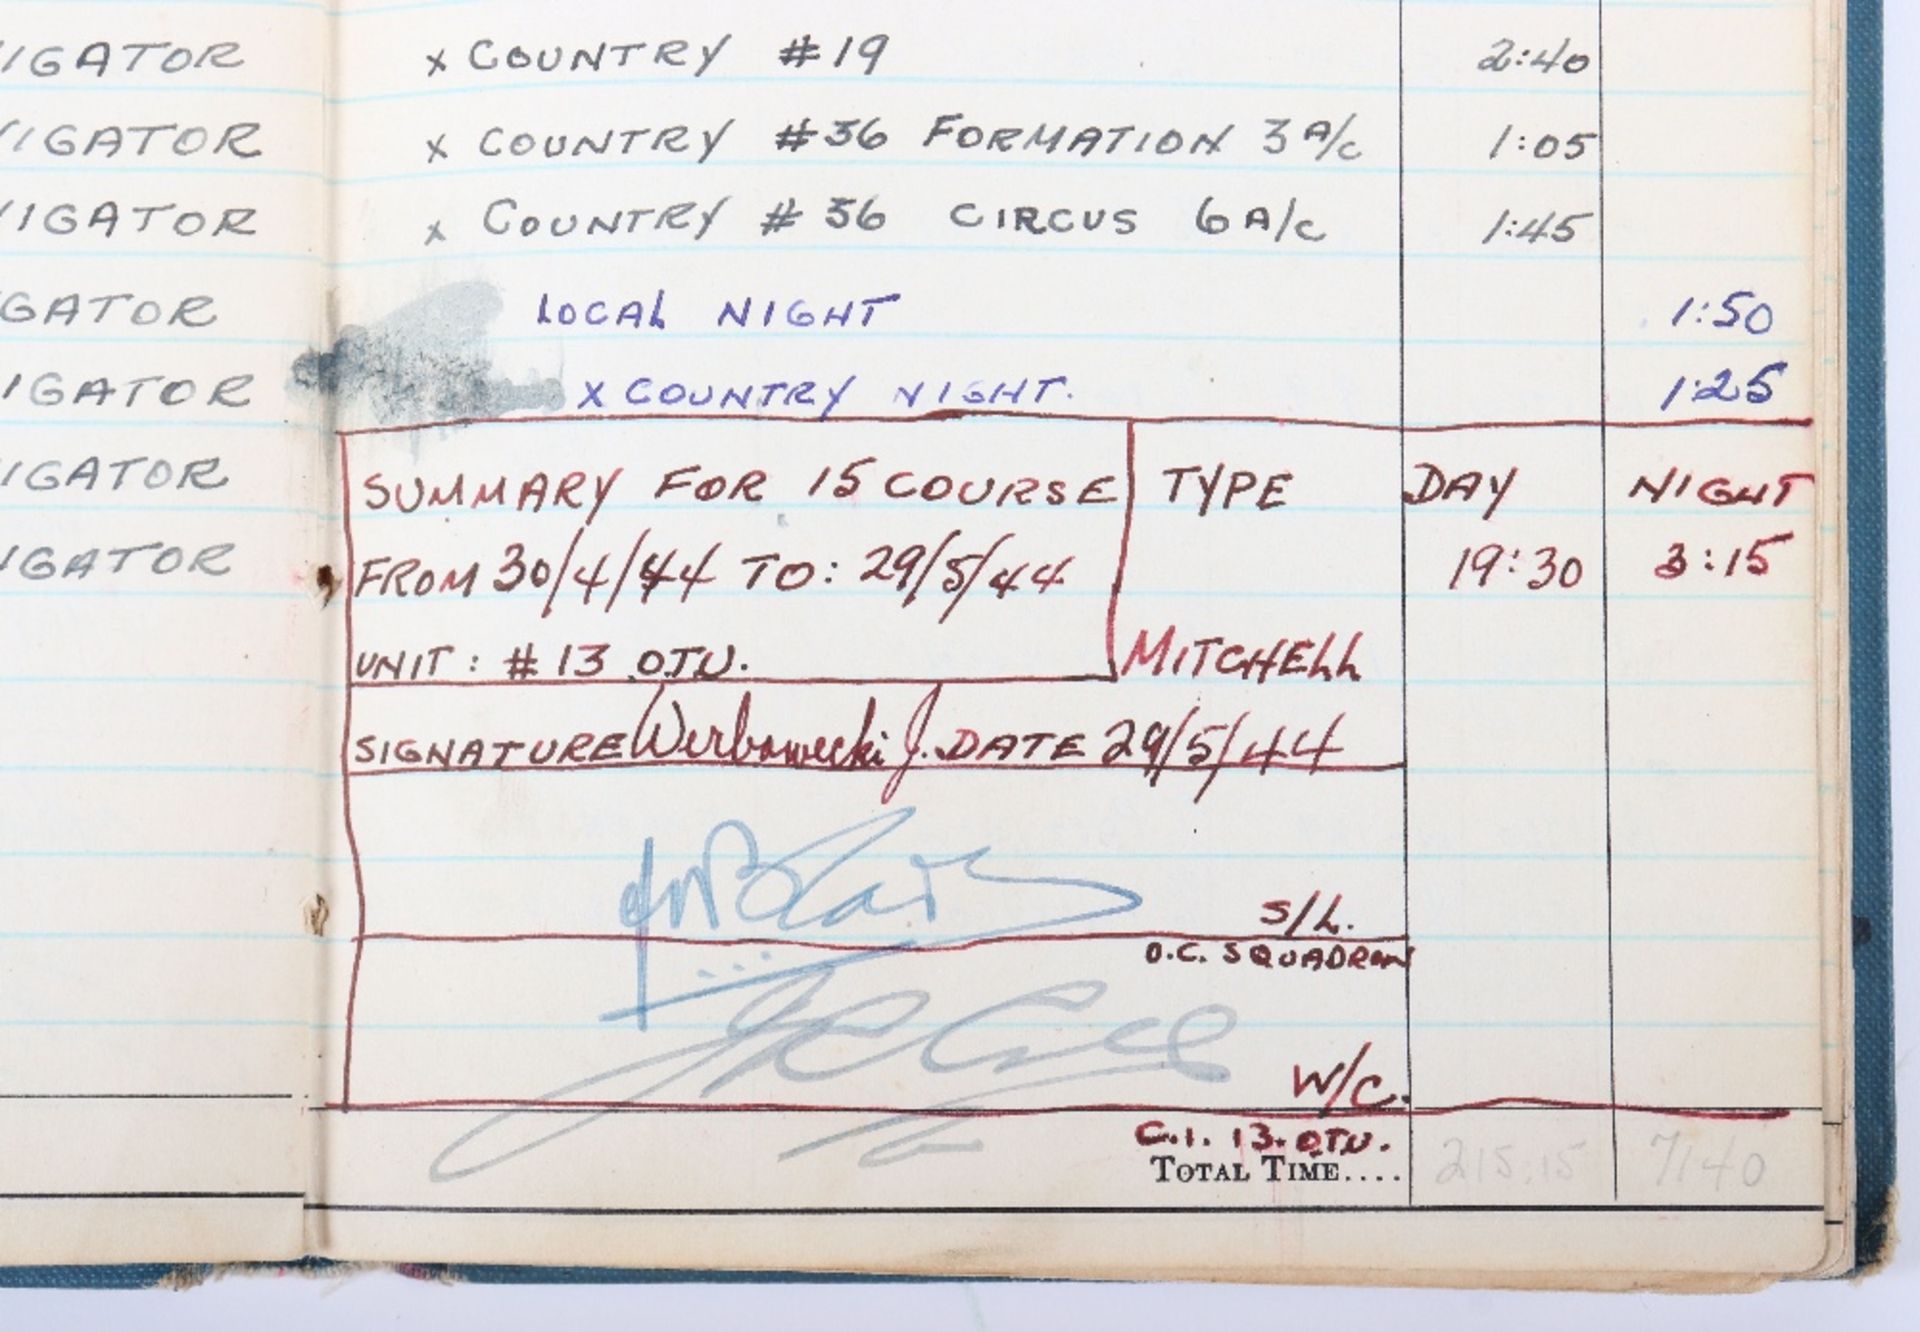 IGATOR x COUNTRY #19 2:40
VIGATOR x COUNTRY #36 FORMATION 3 A/C 1:05
VIGATOR x COUNTRY #36 CIRCUS 6 A/C 1:45
GATOR LOCAL NIGHT 1:50
IGATOR X COUNTRY NIGHT. 1:25
IGATOR SUMMARY FOR 15 COURSE TYPE DAY NIGHT
IGATOR FROM 30/4/44 TO: 29/5/44 19:30 3:15
UNIT: #13 O.T.U. MITCHELL
SIGNATURE Werbowecki J. DATE 29/5/44
S/L.
O.C. SQUADRON
W/C.
C.I. 13. OTU.
TOTAL TIME.... 215:15 71:40